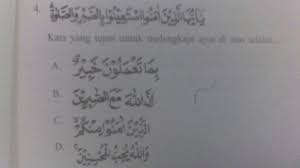 4. يٰٓاَيُّهَا الَّذِيْنَ اٰمَنُوا اسْتَعِيْنُوْا بِالصَّبْرِ وَالصَّلٰوةِ
Kata yang tepat untuk melengkapi ayat di atas adalah....
A. بِمَا تَعْمَلُوْنَ خَبِيْرٌ
B. اِنَّ اللّٰهَ مَعَ الصّٰبِرِيْنَ
C. الَّذِيْنَ اٰمَنُوْا مِنْكُمْ
D. وَاللّٰهُ يُحِبُّ الْمُحْسِنِيْنَ